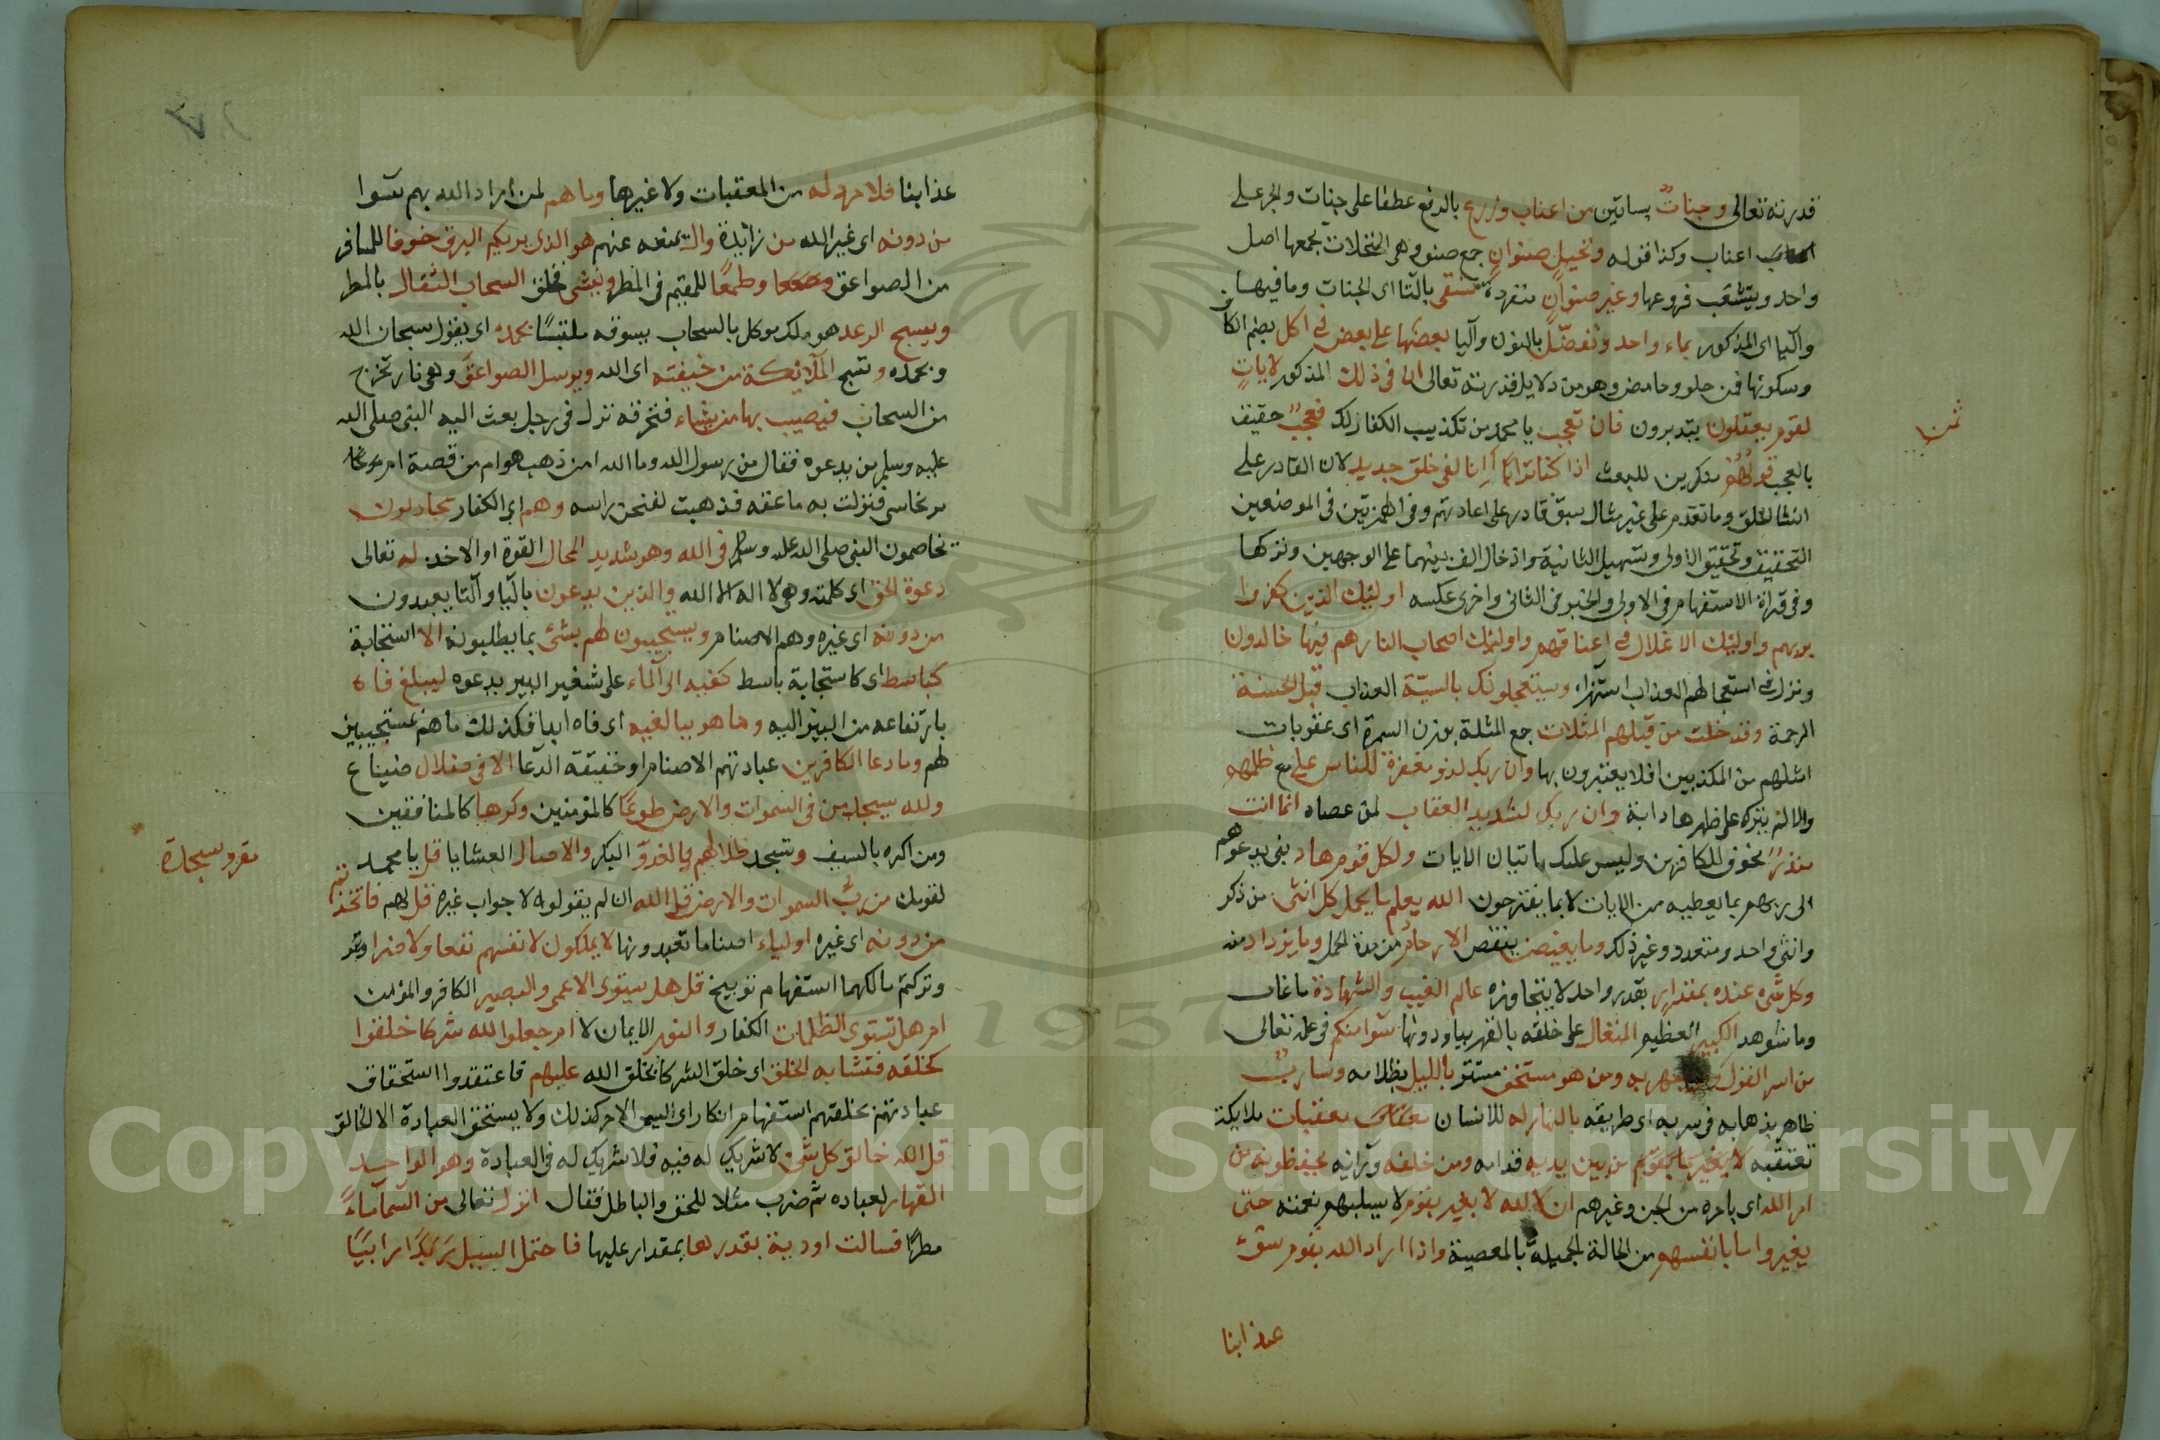 قدرته تعالى وجنات بساتين من اعناب وزرع بالرفع عطفا على جنات والجر على
اعناب وكذا قوله ونخيل صنوان جمع صنو وهى النخلات يجمعها اصل
واحد ويتشعب فروعها وغير صنوان منفردة تسقى بالتا اى الجنات وما فيها
واليا اى المذكور بماء واحد ونفضل بالنون واليا بعضها على بعض فى اكل بضم الكاف
وسكونها فمن حلو وحامض وهو من دلايل قدرته تعالى ان فى ذلك المذكور لايات
لقوم يعقلون يتدبرون فان تعجب يا محمد من تكذيب الكفار لك فعجب حقيق
ثمن
بالعجب قولهم منكرين للبعث اذا كنا ترابا اانا لفى خلق جديد لان القادر على
انشا الخلق وما تقدم على غير مثال سبق قادر على اعادتهم وفى الهمزتين فى الموضعين
التحقيق وتحقيق الاولى وتسهيل الثانية وادخال الف بينهما على الوجهين وتركها
وفى قراة الاستفهام فى الاولى والخبر فى الثانى واخرى عكسه اولئك الذين كفروا
بربهم واولئك الاغلال فى اعناقهم واولئك اصحاب النار هم فيها خالدون
ونزل فى استعجالهم العذاب استهزاء ويستعجلونك بالسيئة العذاب قبل الحسنة
الرحمة وقد خلت من قبلهم المثلات جمع المثلة بوزن السمرة اى عقوبات
امثلهم من المكذبين افلا يعتبرون بها وان ربك لذو مغفرة للناس على مع ظلمهم
والا لم يترك على ظهرها دابة وان ربك لشديد العقاب لمن عصاه انما انت
منذر مخوف للكافرين وليس عليك باتيان الايات ولكل قوم هاد نبى يدعوهم
الى ربهم بما يعطيه من الايات لا بما يقترحون الله يعلم ما يحمل كل انثى من ذكر
وانثى واحد ومتعدد وغير ذلك وما يغيض ينقص الارحام من مدة الحمل وما يزداد منه
وكل شىء عنده بمقدار بقدر واحد لا يتجاوزه عالم الغيب والشهادة ما غاب
وما شوهد الكبير العظيم المتعال على خلقه بالقهر بيا ودونها سوا منكم فى علمه تعالى
من اسر القول ومن جهر به ومن هو مستخف مستتر بالليل بظلامه وسارب
ظاهر بذهابه فى سربه اى طريقه بالنهار له للانسان معقبات ملايكة
تعتقبه من بين يديه قدامه ومن خلفه ورائه يحفظونه من
امر الله اى بامره من الجن وغيرهم ان الله لا يغير بقوم لا يسلبهم نعمته حتى
يغيروا ما بانفسهم من الحالة الجميلة بالمعصية واذا اراد الله بقوم سوء
عذابنا
عذابنا فلا مرد له من المعقبات ولا غيرها وما لهم لمن اراد الله بهم سوا
من دونه اى غير الله من زايدة وال يمنعه عنهم هو الذى يريكم البرق خوفا للمسافر
من الصواعق وطمعا للمقيم فى المطر وينشى يخلق السحاب الثقال بالمطر
ويسبح الرعد هو ملك موكل بالسحاب يسوقه ملتبسا بحمده اى يقول سبحان الله
وبحمده وتسبح الملائكة من خيفته اى الله ويرسل الصواعق وهى نار تخرج
من السحاب فيصيب بها من يشاء فتحرقه نزل فى رجل بعث اليه النبى صلى الله
عليه وسلم من يدعوه فقال من رسول الله وما الله امن ذهب هو ام من فضة ام من نحاس
فنزلت به صاعقة فذهبت لقحف راسه وهم اى الكفار يجادلون
يخاصمون النبى صلى الله عليه وسلم فى الله وهو شديد المحال القوة او الاخذ له تعالى
دعوة الحق اى كلمته وهى لا اله الا الله والذين يدعون باليا والتا يعبدون
من دونه اى غيره وهم الاصنام ويستجيبون لهم بشئ مما يطلبونه الا استجابة
كباسط اى كاستجابة باسط كفيه الى الماء على شفير البير يدعوه ليبلغ فاه
بارتفاعه من البير اليه وما هو ببالغيه اى فاه ابدا فكذلك ما هم بمستجيبين
لهم وما دعا الكافرين عبادتهم الاصنام او حقيقة الدعا الا فى ضلال ضياع
ولله يسجد من فى السموات والارض طوعا كالمؤمنين وكرها كالمنافقين
ومن اكره بالسيف ويسجد ظلالهم بالغدو البكر والاصال العشايا قل يا محمد
مقرو سجدة
لقومك من رب السموات والارض قل الله ان لم يقولوه لا جواب غيره قل لهم فاتخذتم
من دونه اى غيره اولياء اصناما تعبدونها لا يملكون لانفسهم نفعا ولا ضرا
وتركتم مالكهما استفهام توبيخ قل هل يستوى الاعمى والبصير الكافر والمؤمن
ام هل تستوى الظلمات الكفار والنور الايمان لا ام جعلوا لله شركا خلقوا
كخلقه فتشابه الخلق اى خلق الشركا بخلق الله عليهم فاعتقدوا استحقاق
عبادتهم بخلقهم استفهام انكار اى ليس الامر كذلك ولا يستحق العبادة الا الخالق
قل الله خالق كل شئ لا شريك له فيه فلا شريك له فى العبادة وهو الواحد
القهار لعباده ثم ضرب مثلا للحق والباطل فقال انزل تعالى من السما ماء
مطرا فسالت اودية بقدرها بمقدار عليها فاحتمل السيل زبدا رابيا
1957
Copyright © King Saud University